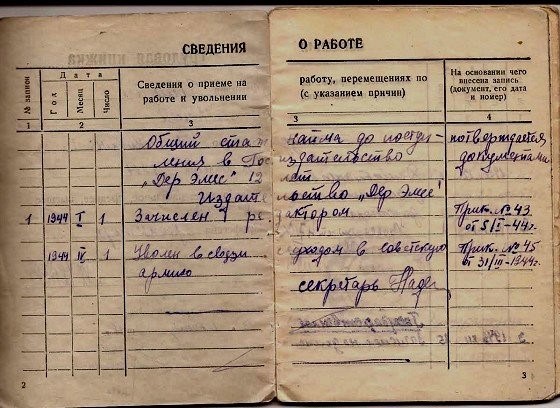 СВЕДЕНИЯ О РАБОТЕ
№ записи
Дата
Год
Месяц
Число
Сведения о приеме на работу, перемещениях по
работе и увольнении (с указанием причин)
На основании чего
внесена запись
(документ, его дата
и номер)
1 2 3 3 4
Общий стаж найма до поступ- потверждается
ления в Гос издательство документами
„Дер Эмес" 12 лет
Издательство „Дер Эмес"
1 1944 I 1 Зачислен редактором Прик. № 43
от 5/I-44г.
1944 IV 1 Уволен в связи с уходом в советскую Прик. № 45
армию от 31/III-1944г.
секретарь
2 3